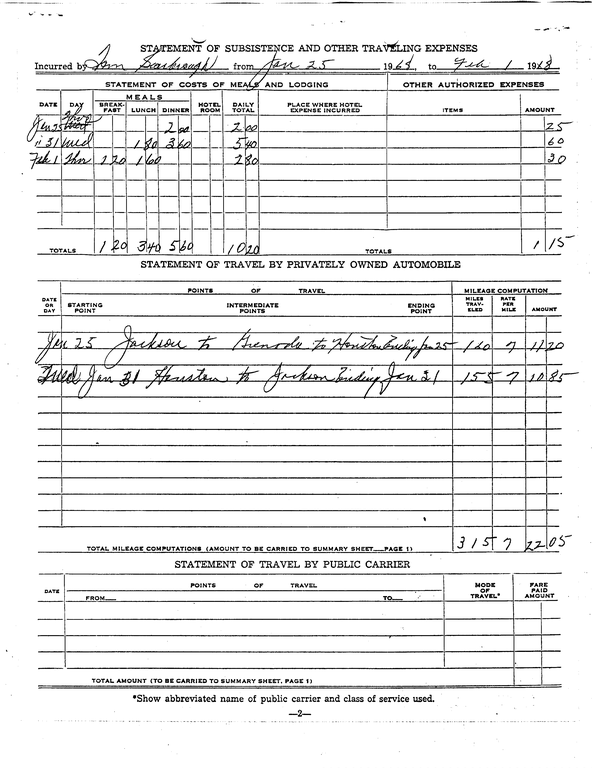 STATEMENT OF SUBSISTENCE AND OTHER TRAVELING EXPENSES
Incurred by Tom Scarbrough from Jan 25 1968, to Feb 1 1968
STATEMENT OF COSTS OF MEALS AND LODGING OTHER AUTHORIZED EXPENSES
MEALS
DATE DAY BREAK-FAST LUNCH DINNER HOTEL ROOM DAILY TOTAL PLACE WHERE HOTEL EXPENSE INCURRED ITEMS AMOUNT
Jan 25 2 00 2 00 25
" 31 Wed 1 80 3 60 5 40 60
Feb 1 Thr 1 20 1 60 2 80 30
TOTALS 1 20 3 40 5 60 10 20 TOTALS 1 15
STATEMENT OF TRAVEL BY PRIVATELY OWNED AUTOMOBILE
POINTS OF TRAVEL MILEAGE COMPUTATION
DATE OR DAY STARTING POINT INTERMEDIATE POINTS ENDING POINT MILES TRAV-ELED RATE PER MILE AMOUNT
Jan 25 Jackson to Grenada to Houston Ending Jan 25 160 7 11 20
Wed Jan 31 Houston, to Jackson Ending Jan 31 155 7 10 85
TOTAL MILEAGE COMPUTATIONS (AMOUNT TO BE CARRIED TO SUMMARY SHEET__PAGE 1) 315 7 22 05
STATEMENT OF TRAVEL BY PUBLIC CARRIER
DATE POINTS OF TRAVEL MODE OF TRAVEL* FARE PAID AMOUNT
FROM__ TO__
TOTAL AMOUNT (TO BE CARRIED TO SUMMARY SHEET, PAGE 1)
*Show abbreviated name of public carrier and class of service used.
—2—